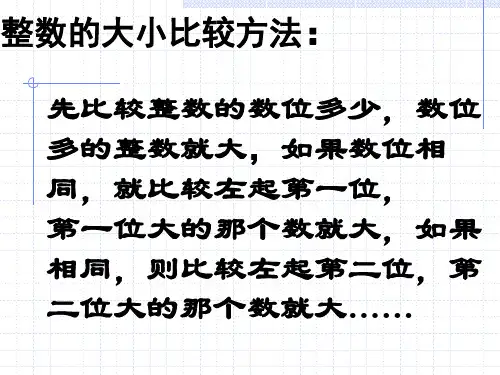 整数的大小比较方法：
先比较整数的数位多少，数位
多的整数就大，如果数位相
同，就比较左起第一位，
第一位大的那个数就大，如果
相同，则比较左起第二位，第
二位大的那个数就大……